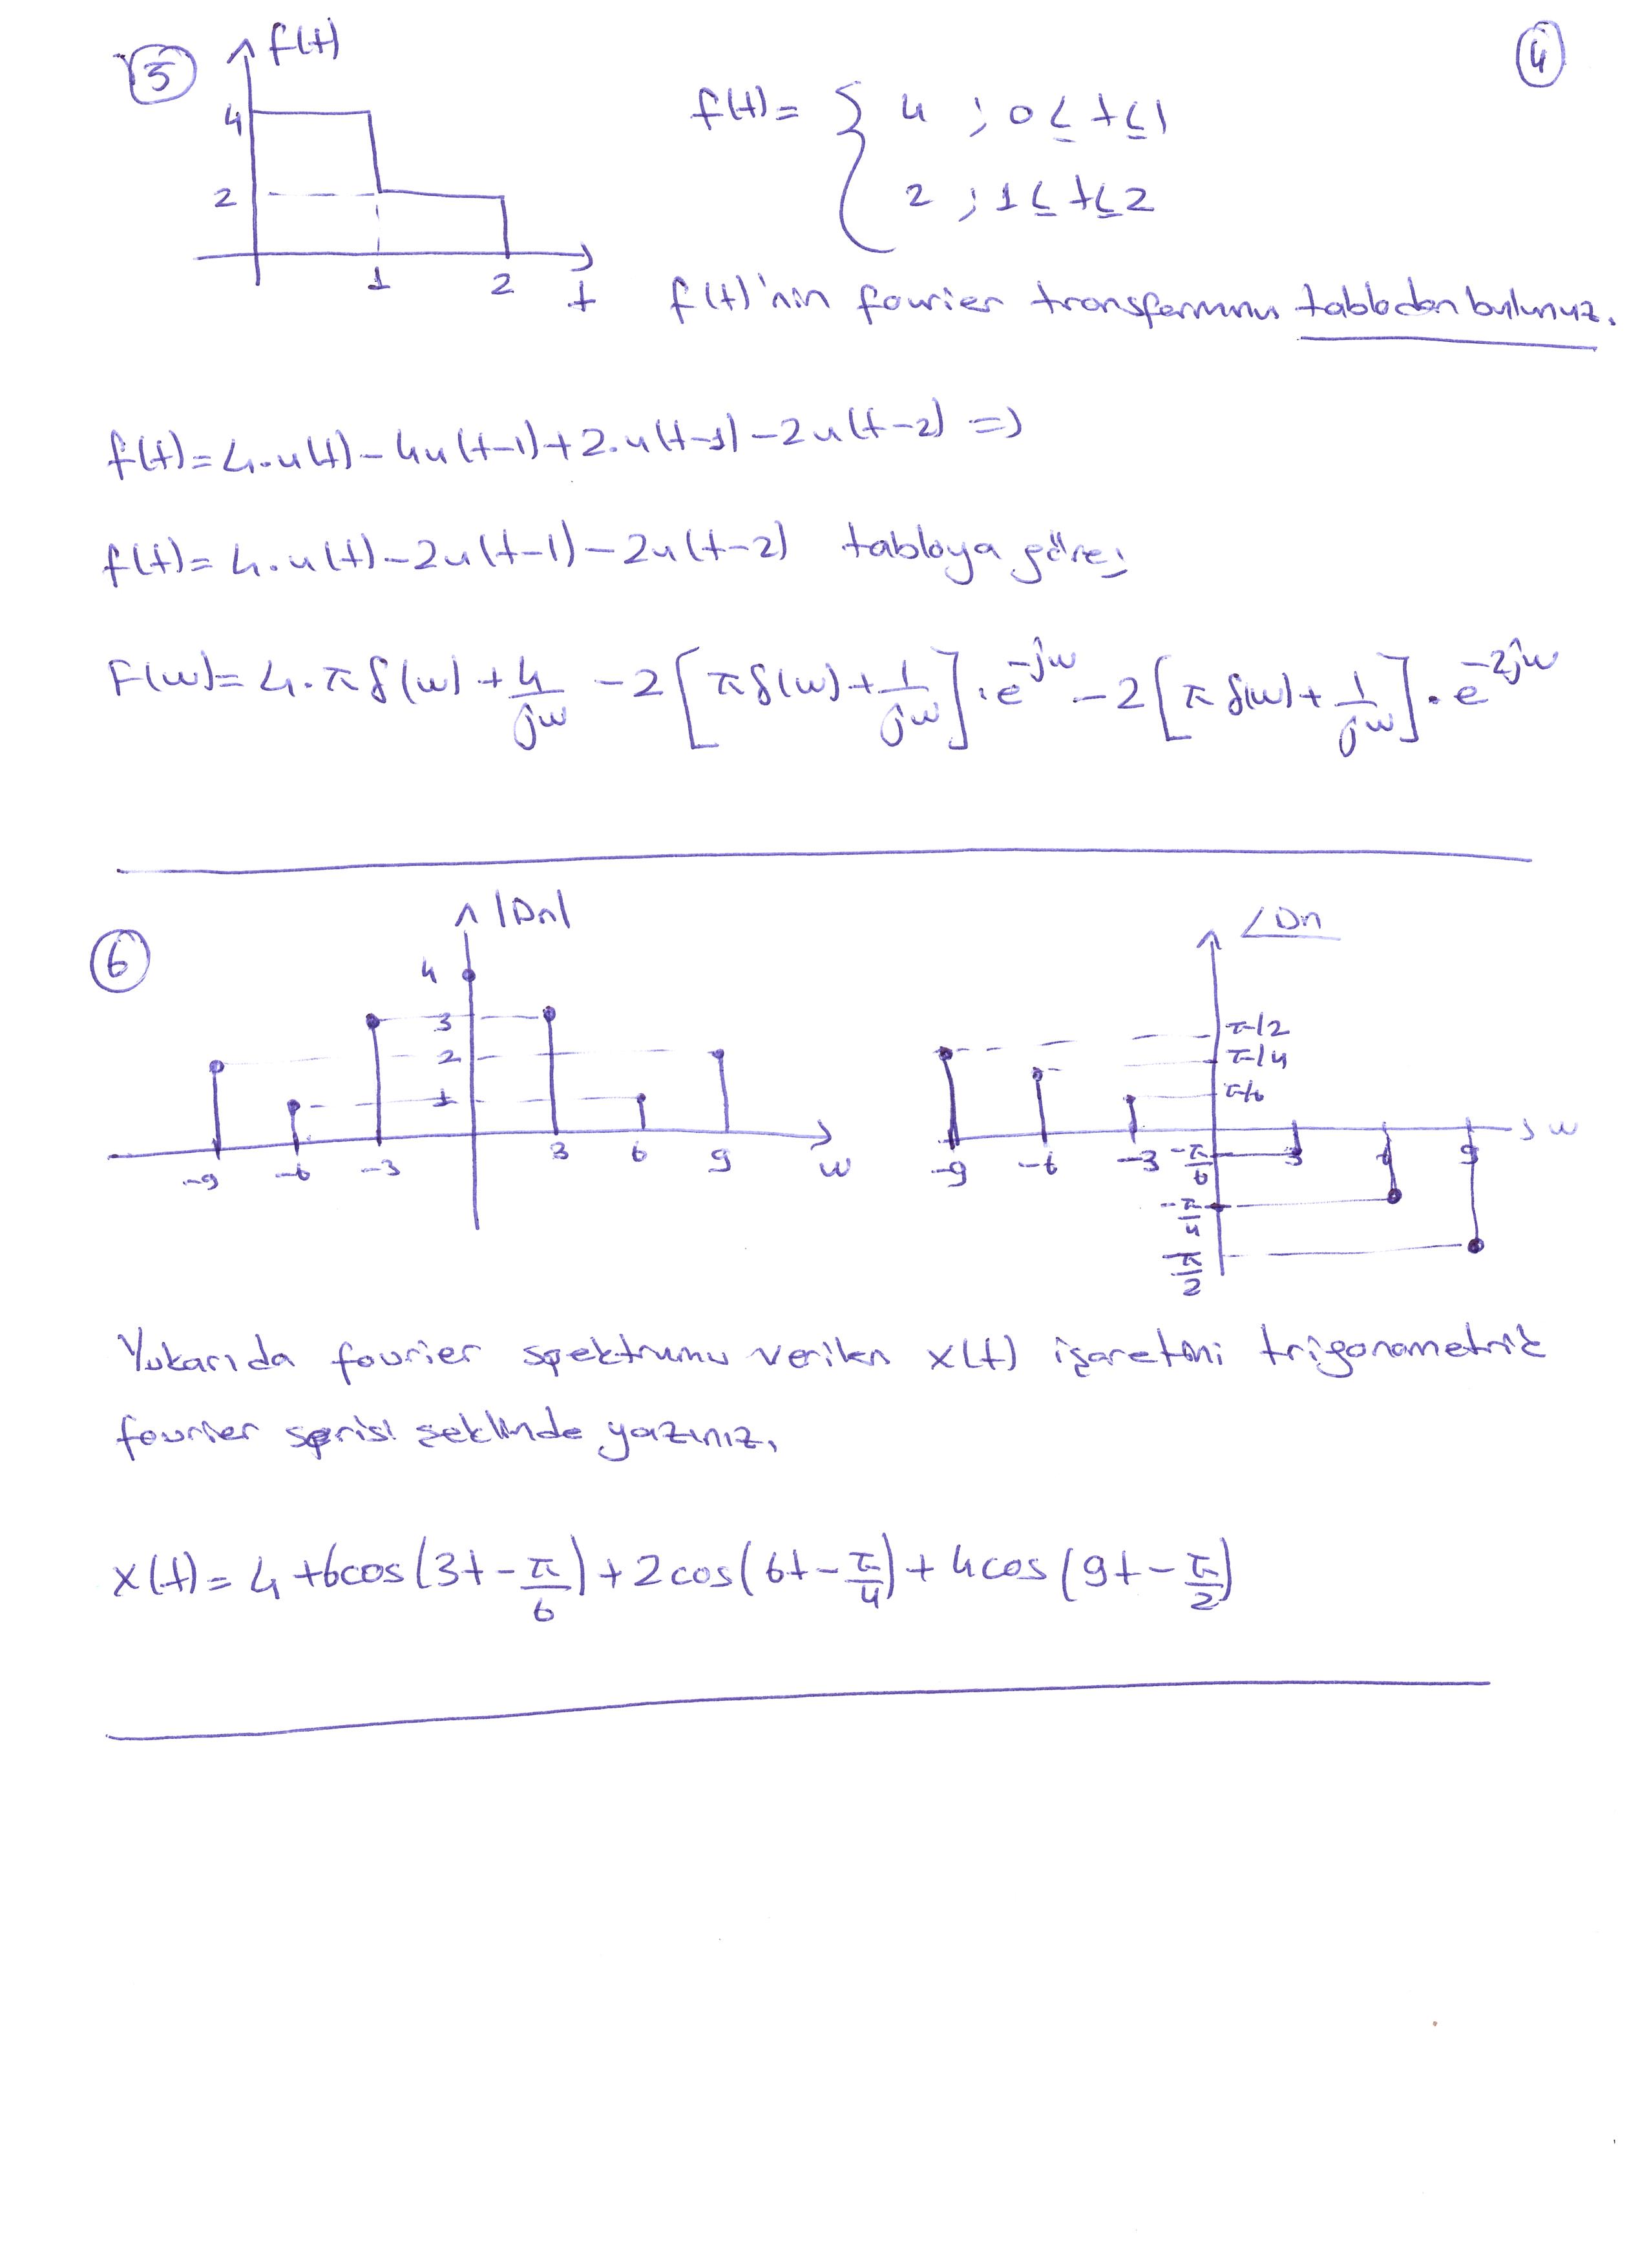 5
f(t)
4
2
1
2
t
4
f(t) = { 4 ; 0 ≤ t ≤ 1
2 ; 1 ≤ t ≤ 2
f(t)'nin fourier transformunu tablodan bulunuz.
f(t) = 4.u(t) - 4u(t-1) + 2.u(t-1) - 2u(t-2) =>
f(t) = 4.u(t) - 2u(t-1) - 2u(t-2) tabloya göre;
F(w) = 4.π δ(w) + 4/jw - 2[π δ(w) + 1/jw].e^-jw - 2[π δ(w) + 1/jw].e^-2jw
6
|Dn|
4
3
2
1
-9 -6 -3 3 6 9 w
∠Dn
π/2
π/4
π/6
-9 -6 -3 3 6 9 w
-π/6
-π/4
-π/2
Yukarıda fourier spektrumu verilen x(t) işaretini trigonometrik
fourier serisi şeklinde yazınız.
x(t) = 4 + 6cos(3t - π/6) + 2cos(6t - π/4) + 4cos(9t - π/2)